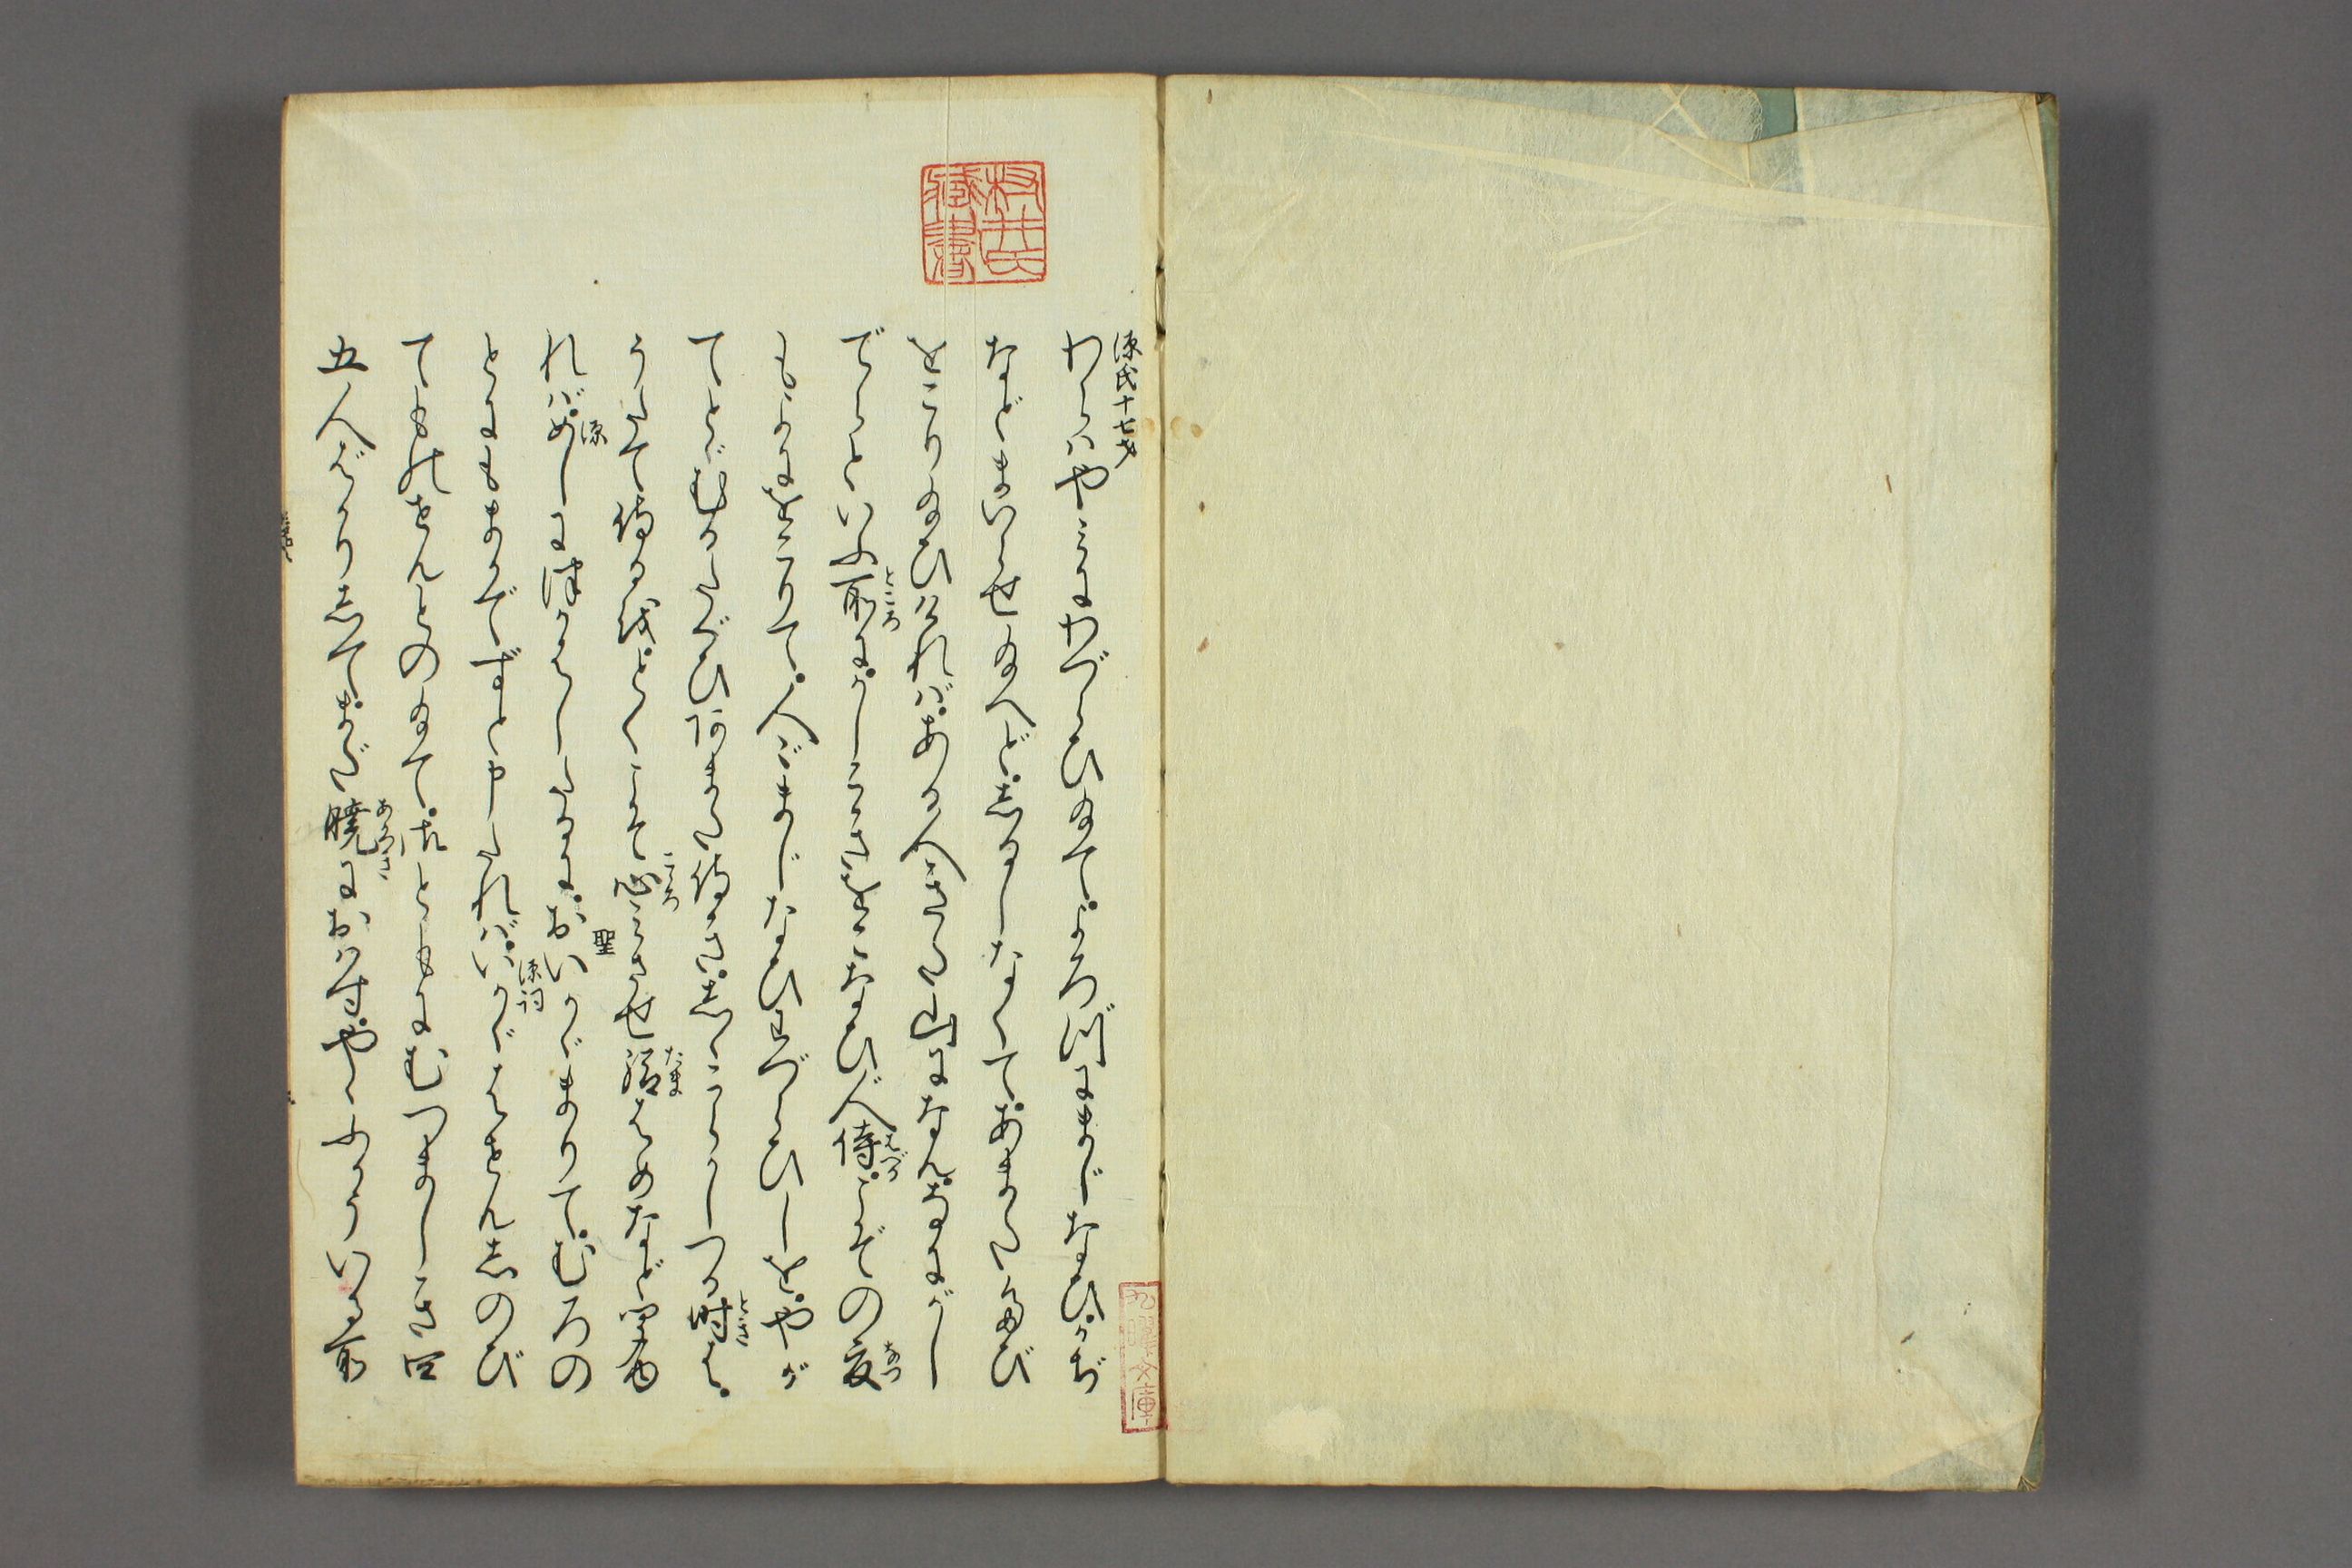 源氏十七才
わらはやみにわづらひ給て。よろづにまじなひ。かぢ
などまいらせ給へど。しるしなくて。あまたたび
をこり給ひければ。ある人きた山になん。なにがし
でらといふ所に。かしこきをこなひ人侍。こぞの夏
ところ
はべる
なつ
もよにをこりて。人〻まじなひわづらひしを。やが
てとゞむるたぐひあまた侍き。しゝこらかしつる時は。
とき
うたて侍るを。とくこそ心みさせ給はめなど聞ゆ
こゝろ
たま
れば。めしにつかはしたるに。おいかゞまりて。むろの
源
聖
とにもまかでずと申たれば。いかゞはせんしのび
源詞
てものせんとの給て。御ともにむつましき四
五人ばかりして。まだ暁におはす。やゝふかういる所
あかつき
杉井氏
蔵書
九曜文庫